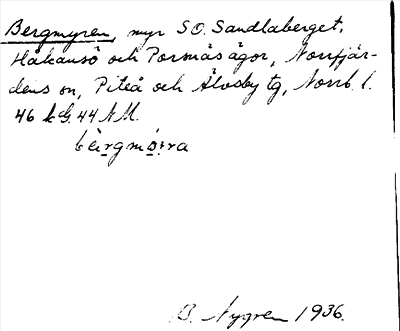 Bergmyren, myr SO. Sandlaberget,
Håkansö och Porsnäs ägor, Norrfjär-
dens sn, Piteå och Älvsby tg, Norrb. l.
46 k G. 44 N M.
bèrgmó̤i:ra
B. Nygren 1936.